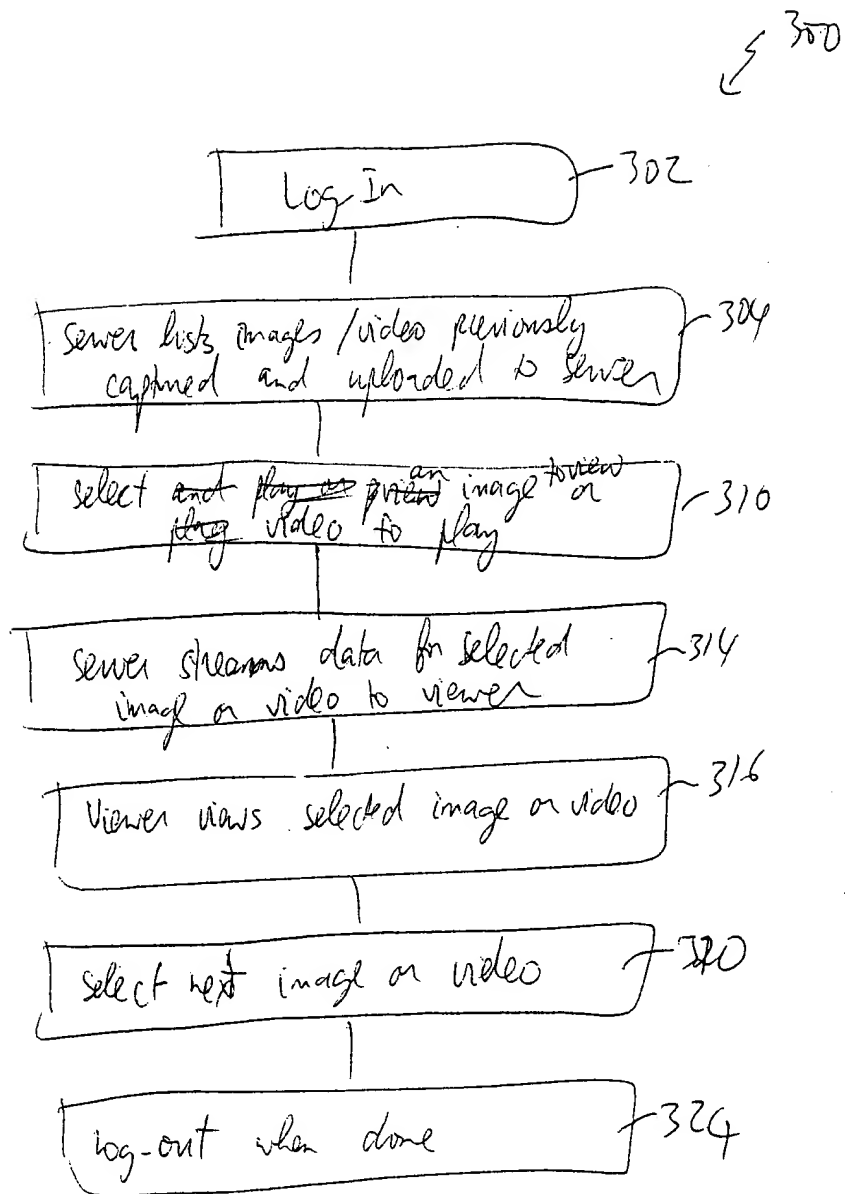 300
Log In
302
server lists images / video previously
captured and uploaded to server
304
select and play or preview an image to view or
play video to play
310
server streams data for selected
image or video to viewer
314
Viewer views selected image or video
316
select next image or video
320
log-out when done
324